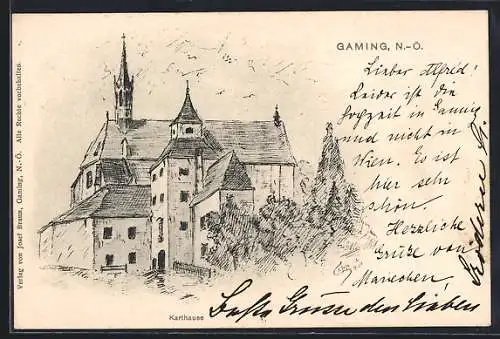 GAMING, N.-Ö.
Lieber Alfred!
Leider ist die
Hochzeit in Gaming
und nicht in
Wien. Es ist
hier sehr
schön.
Herzliche
Grüße von
Mariechen,
Beste Grüsse den Lieben
Karthause
Verlag von Josef Braun, Gaming, N.-Ö. Alle Rechte vorbehalten.